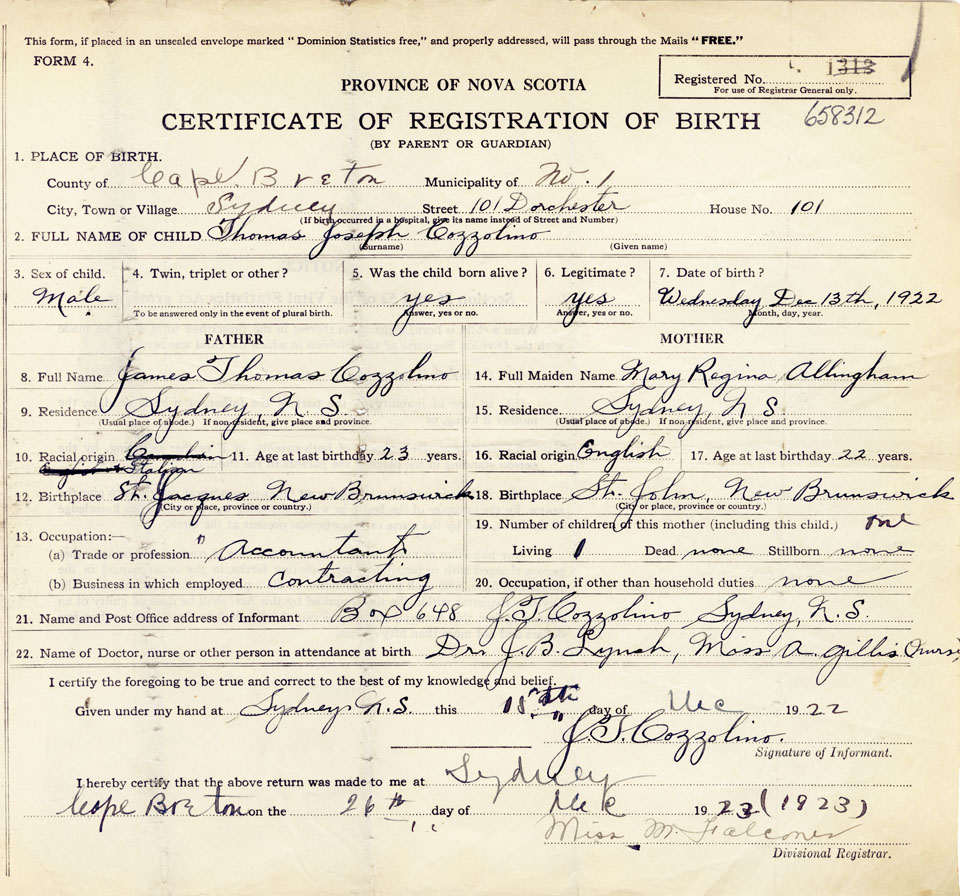 This form, if placed in an unsealed envelope marked "Dominion Statistics free," and properly addressed, will pass through the Mails "FREE."
FORM 4.
Registered No. 1313
For use of Registrar General only.
PROVINCE OF NOVA SCOTIA
658312
CERTIFICATE OF REGISTRATION OF BIRTH
(BY PARENT OR GUARDIAN)
1. PLACE OF BIRTH.
County of Cape Breton Municipality of No. 1
City, Town or Village Sydney Street 101 Dorchester House No. 101
(If birth occurred in a hospital, give its name instead of Street and Number)
2. FULL NAME OF CHILD Thomas Joseph Cozzolino
(Surname) (Given name)
3. Sex of child. 4. Twin, triplet or other? 5. Was the child born alive? 6. Legitimate? 7. Date of birth?
Male yes yes Wednesday Dec 13th, 1922
To be answered only in the event of plural birth. Answer, yes or no. Answer, yes or no. Month, day, year.
FATHER MOTHER
8. Full Name James Thomas Cozzolino 14. Full Maiden Name Mary Regina Allingham
9. Residence Sydney, N S. 15. Residence. Sydney, N S
(Usual place of abode.) If non-resident, give place and province. (Usual place of abode.) If non-resident, give place and province.
10. Racial origin Canadian 11. Age at last birthday 23 years. 16. Racial origin English 17. Age at last birthday 22 years.
Italian
12. Birthplace St. Jacques New Brunswick 18. Birthplace St. John, New Brunswick
(City or place, province or country.) (City or place, province or country.)
19. Number of children of this mother (including this child.) one
13. Occupation:—
(a) Trade or profession Accountant Living 1 Dead none Stillborn none
(b) Business in which employed contracting 20. Occupation, if other than household duties none
21. Name and Post Office address of Informant Box 648 J. T. Cozzolino Sydney, N. S.
22. Name of Doctor, nurse or other person in attendance at birth Dr. J. B. Lynch, Miss A. Gillis (nurse
I certify the foregoing to be true and correct to the best of my knowledge and belief.
Given under my hand at Sydney N.S. this day of Dec 1922
J. T. Cozzolino.
Signature of Informant.
I hereby certify that the above return was made to me at Sydney
Cape Breton on the 26th day of Dec 1923 (1923)
Miss M. Falconer
Divisional Registrar.